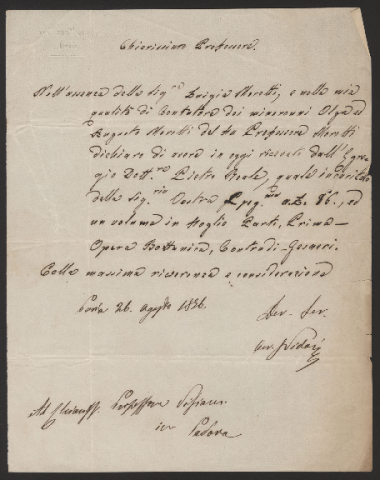 Chiarissimo Professore.
Nell'assenza della Sig.ra Luigia Moretti, e nella mia
qualità di Contutore dei minorenni Olga ed
Augusto Moretti del fu Professore Moretti
dichiaro di avere in oggi ricevuti dall'Egre-
gio Dott.re Pietro, quale incaricato
della Sig.ria Vostra 86., ed
un volume in Foglio Parti, Prima
Opera Bottanica,
Colla massima riverenza e considerazione
Pavia 26. Agosto 1856.
Dev. Ser.
Al Chiariss. Professore Visiani
in
Padova